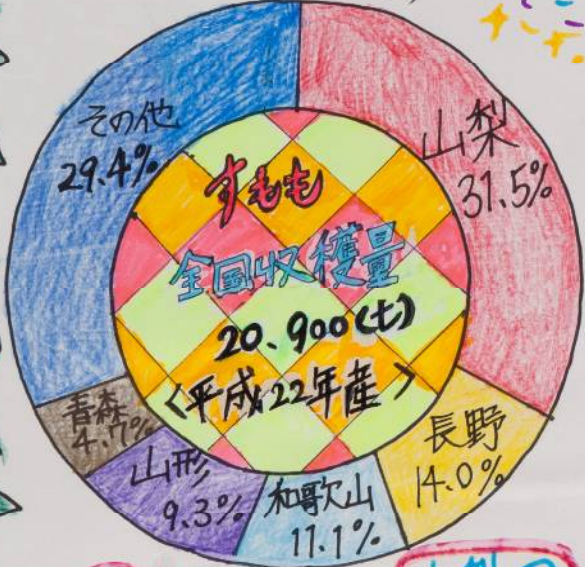 すもも
全国収穫量
20.900(t)
<平成22年産>
山梨
31.5%
長野
14.0%
和歌山
11.1%
山形
9.3%
青森
4.7%
その他
29.4%